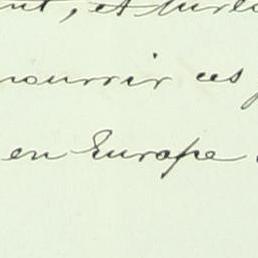 nt, et surt
nourrir ces
en Europe